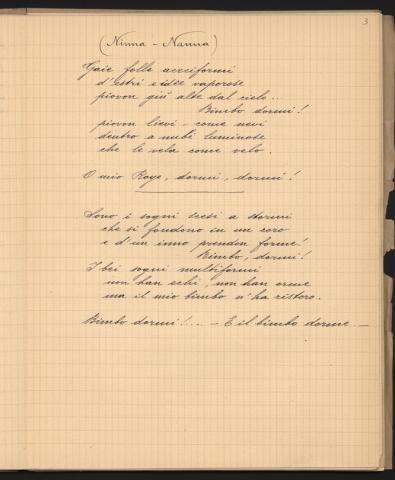 3
(Ninna - Nanna)
Gaie folle aeriformi
d'estri e idee vaporose
piovon giù alte dal cielo...
Bimbo dormi!
piovon lievi - come nevi
dentro a nubi luminose
che le vela come velo.
O mio Roye, dormi, dormi!
Sono i sogni scesi a stormi
che si fondono in un coro
e d'un inno prendon forme!
Bimbo, dormi!
I bei sogni multiformi
non han echi, non han orme
ma il mio bimbo n'ha ristoro.
Bimbo dormi!... - E il bimbo dorme. -